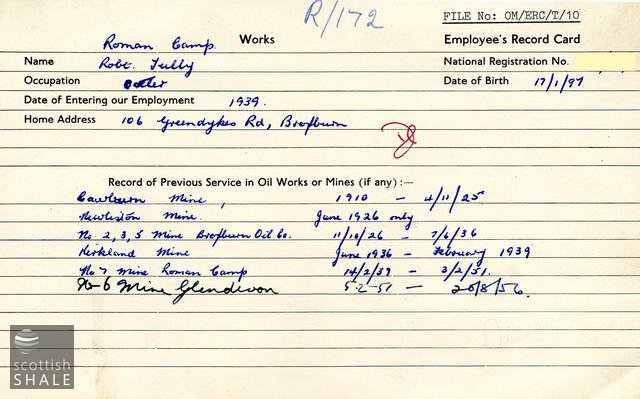 R/172
FILE No: OM/ERC/T/10
Roman Camp. Works
Employee's Record Card
Name Robt. Tully
National Registration No.
Occupation
Date of Birth 17/1/97
Date of Entering our Employment 1939.
Home Address 106 Greendykes Rd, Broxburn
Record of Previous Service in Oil Works or Mines (if any):—
Cawburn Mine, 1910 — 4/11/25
Newliston Mine. June 1926 only
No. 2, 3, 5 Mine Broxburn Oil Co. 11/10/26 — 7/6/36
Kirkland Mine June 1936 — February 1939
No 7 Mine Roman Camp 14/2/39 — 3/2/51.
No 6 Mine Glendevon 5-2-51 — 20/8/56.
scottish
SHALE